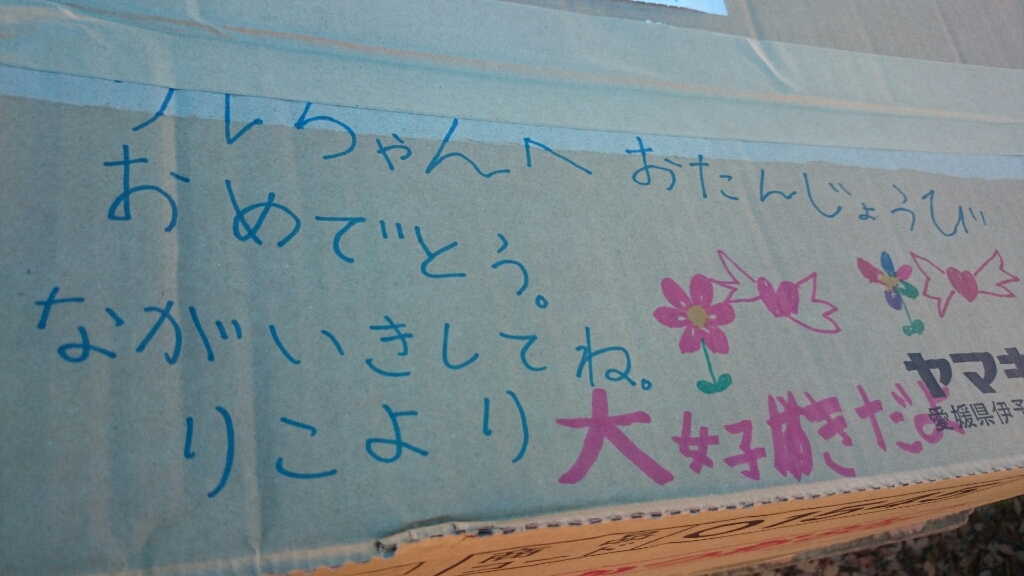 レちゃんへ おたんじょうび
おめでとう。
ながいきしてね。
りこより 大好きだよ
ヤマキ
愛媛県伊予